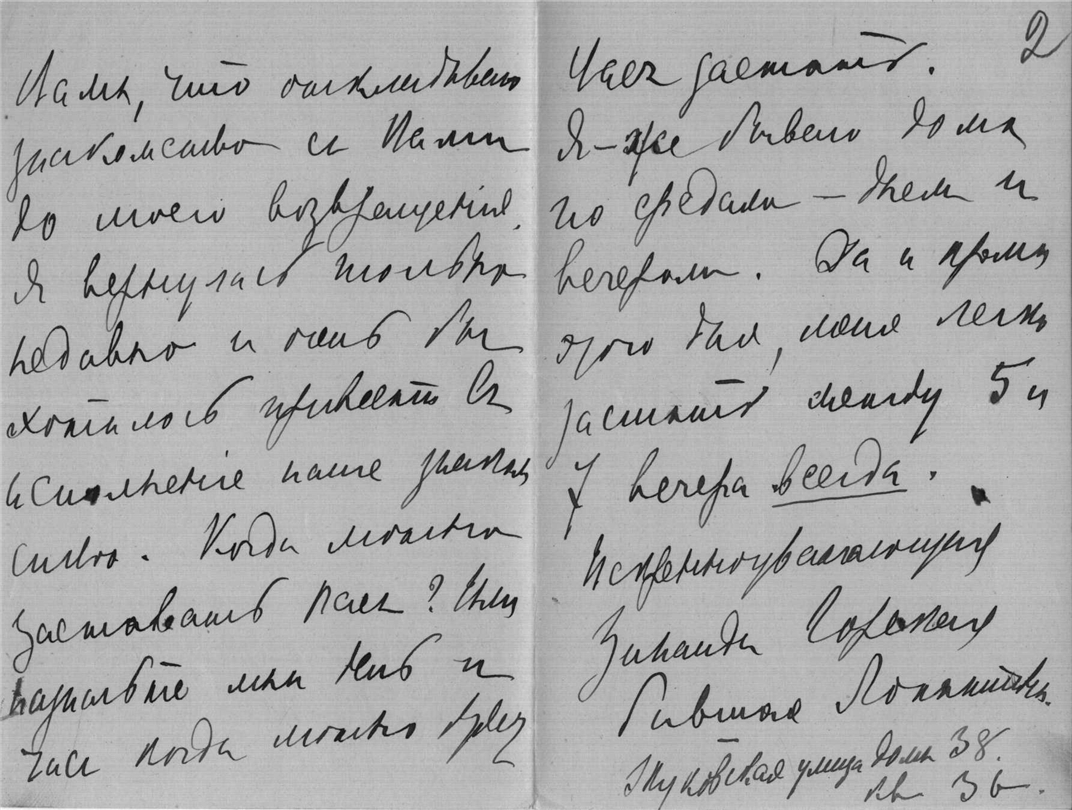 Вами, что откладываю
знакомство съ Вами
до моего возвращенія.
Я вернулась только
недавно и очень бы
хотѣлось привесть въ
исполненіе наше знаком
ство. Когда можно
заставать Васъ? Или
назначьте мнѣ день и
часъ когда можно будетъ
2
Васъ застать.
Я-же бываю дома
по средамъ — днемъ и
вечеромъ. Да и кромѣ
этого дня, меня легко
застать между 5 и
7 вечера всегда.
Искреннеуважающая
Зинаида
бывшая
Жуковская улица домъ 38.
кв 36.